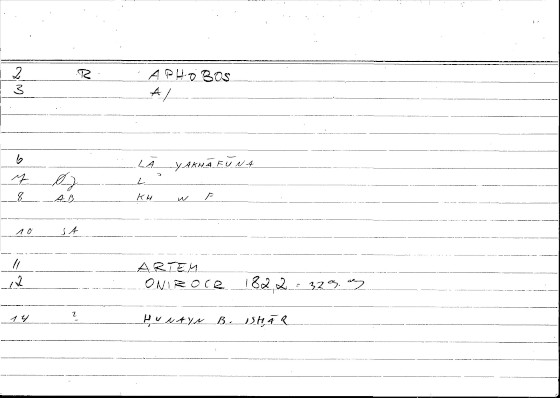 2 R APHOBOS
3 A/
6 LĀ YAKHĀFŪNA
7 L
8 AB KH W F
10 SA
11 ARTEM
12 ONIROCR 182,2 =
14 ? ḤUNAYN B. ISḤĀR